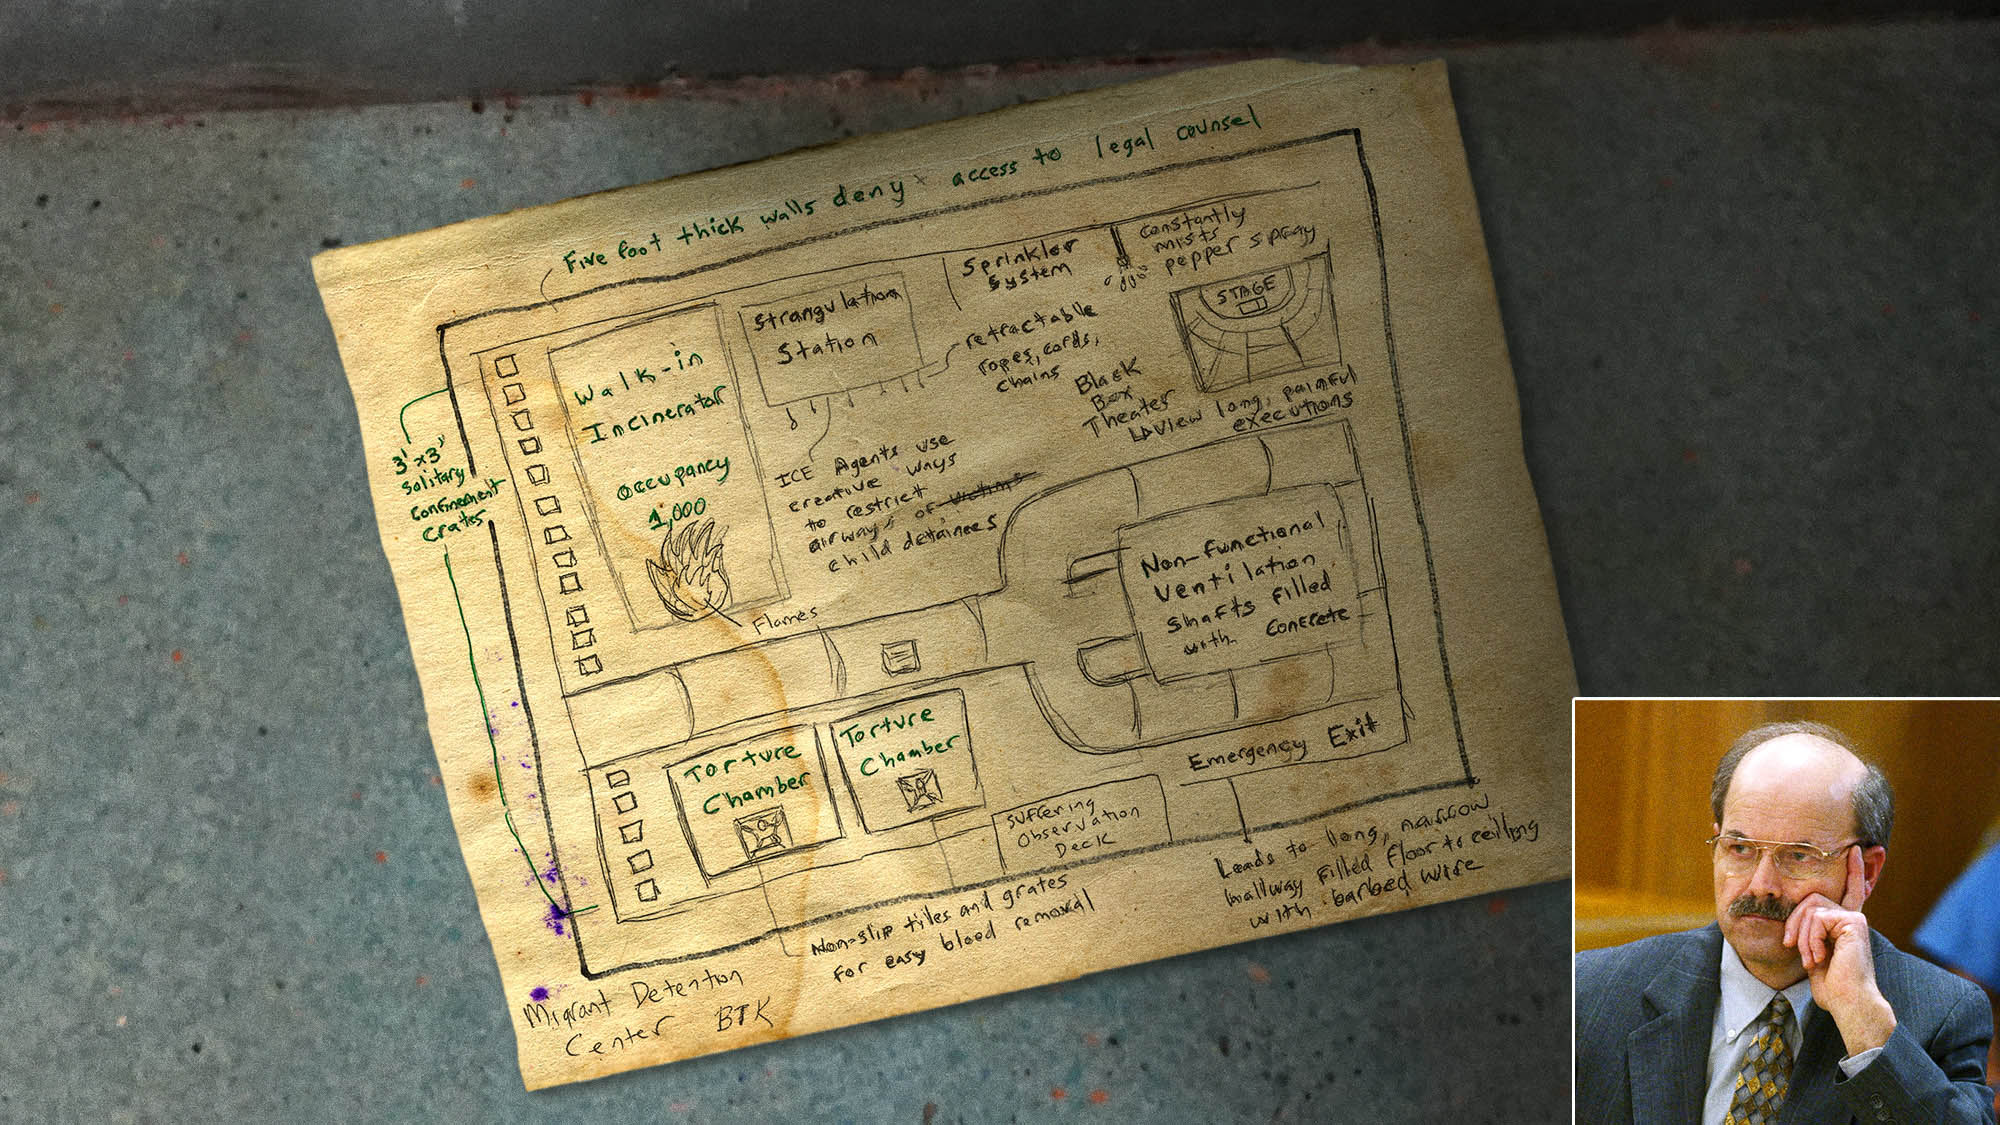 Five foot thick walls deny access to legal counsel
3' x 3'
solitary
confinement
crates
Walk-in
Incinerator
Occupancy
1,000
Flames
Strangulation
Station
retractable
ropes, cords,
chains
ICE Agents use
creative ways
to restrict
airways of victims
child detainees
Sprinkler
System
Constantly
mists
pepper spray
STAGE
Black
Box
Theater
View long, painful
executions
Non-functional
ventilation
shafts filled
with concrete
Torture
Chamber
Torture
Chamber
Suffering
Observation
Deck
Emergency Exit
Leads to long, narrow
hallway filled floor to ceiling
with barbed wire
Non-slip tiles and grates
for easy blood removal
Migrant Detention
Center BTK